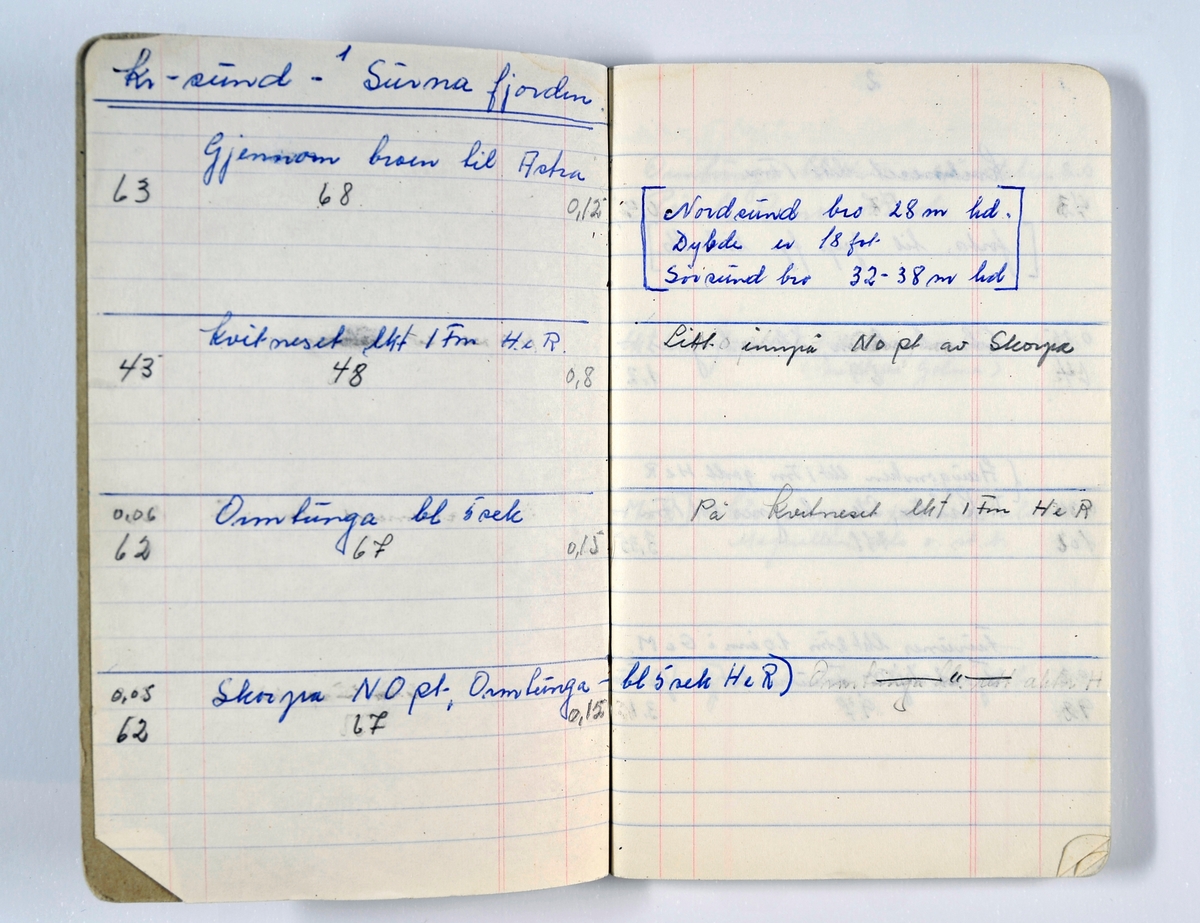 1
Kr-sund - Surna fjorden.
Gjennom broen til Astra
63 68 0,12
Kvitneset lkt 1 Fm HeR
43 48 0,8
0,06 Ormtunga bl 5 sek
62 67 0,15
0,05 Skorpa NO pt, Ormtunga - bl 5 sek HeR)
62 67 0,15
2
Nordsund bro 28 m hd.
Dybde er 18 fot
Sørsund bro 32-38 m hd
Litt innpå NO pt av Skorpa
På Kvitneset lkt 1 Fm HeR